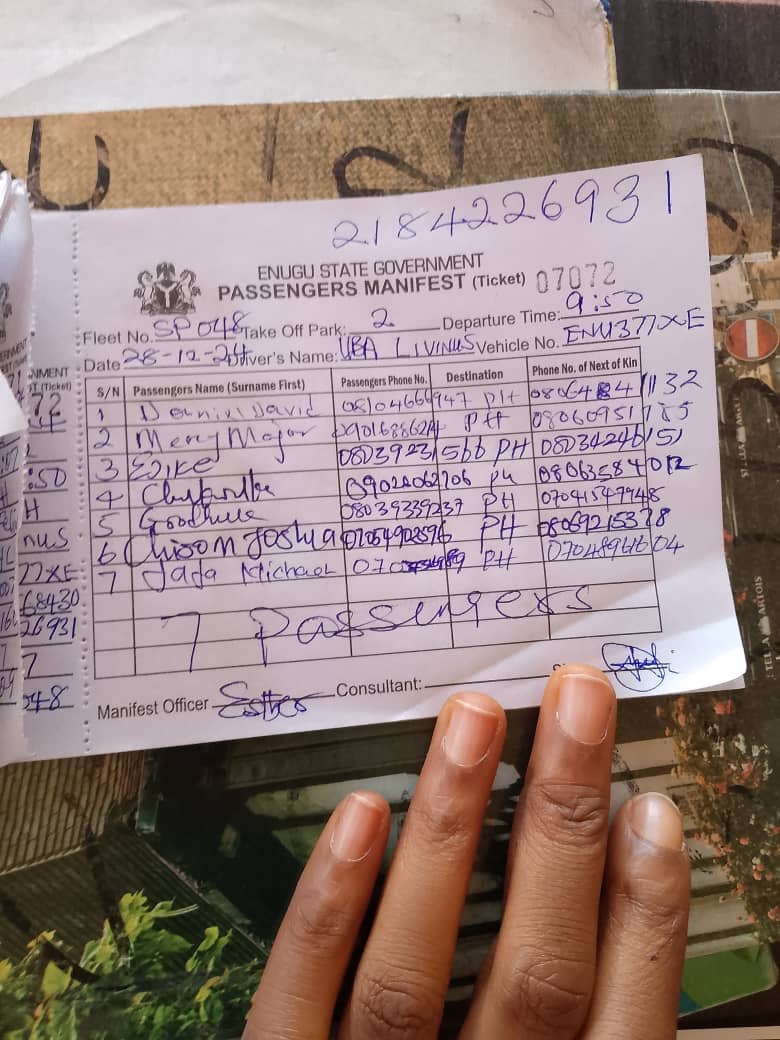 2184226931
ENUGU STATE GOVERNMENT
PASSENGERS MANIFEST (Ticket) 07072
Fleet No. SP 048 Take Off Park: 2 Departure Time: 9:50
Date 28-12-24 Driver's Name: UBA LIVINUS Vehicle No. ENU377XE
S/N Passengers Name (Surname First) Passengers Phone No. Destination Phone No. of Next of Kin
1 David 08104666947 PH
2 Mercy Major PH 08060951785
3 Ejike 08039231566 PH 08034246151
4 09024062706 PH
5 08039339237 PH 07041547948
6 Chisom Joshua PH 08069215378
7 Jaja Michael PH
7 Passengers
Manifest Officer Esther Consultant:
NMENT
(Ticket)
72
:50
H
nus
77XE
68430
26931
7
048
STELLA ARTOIS